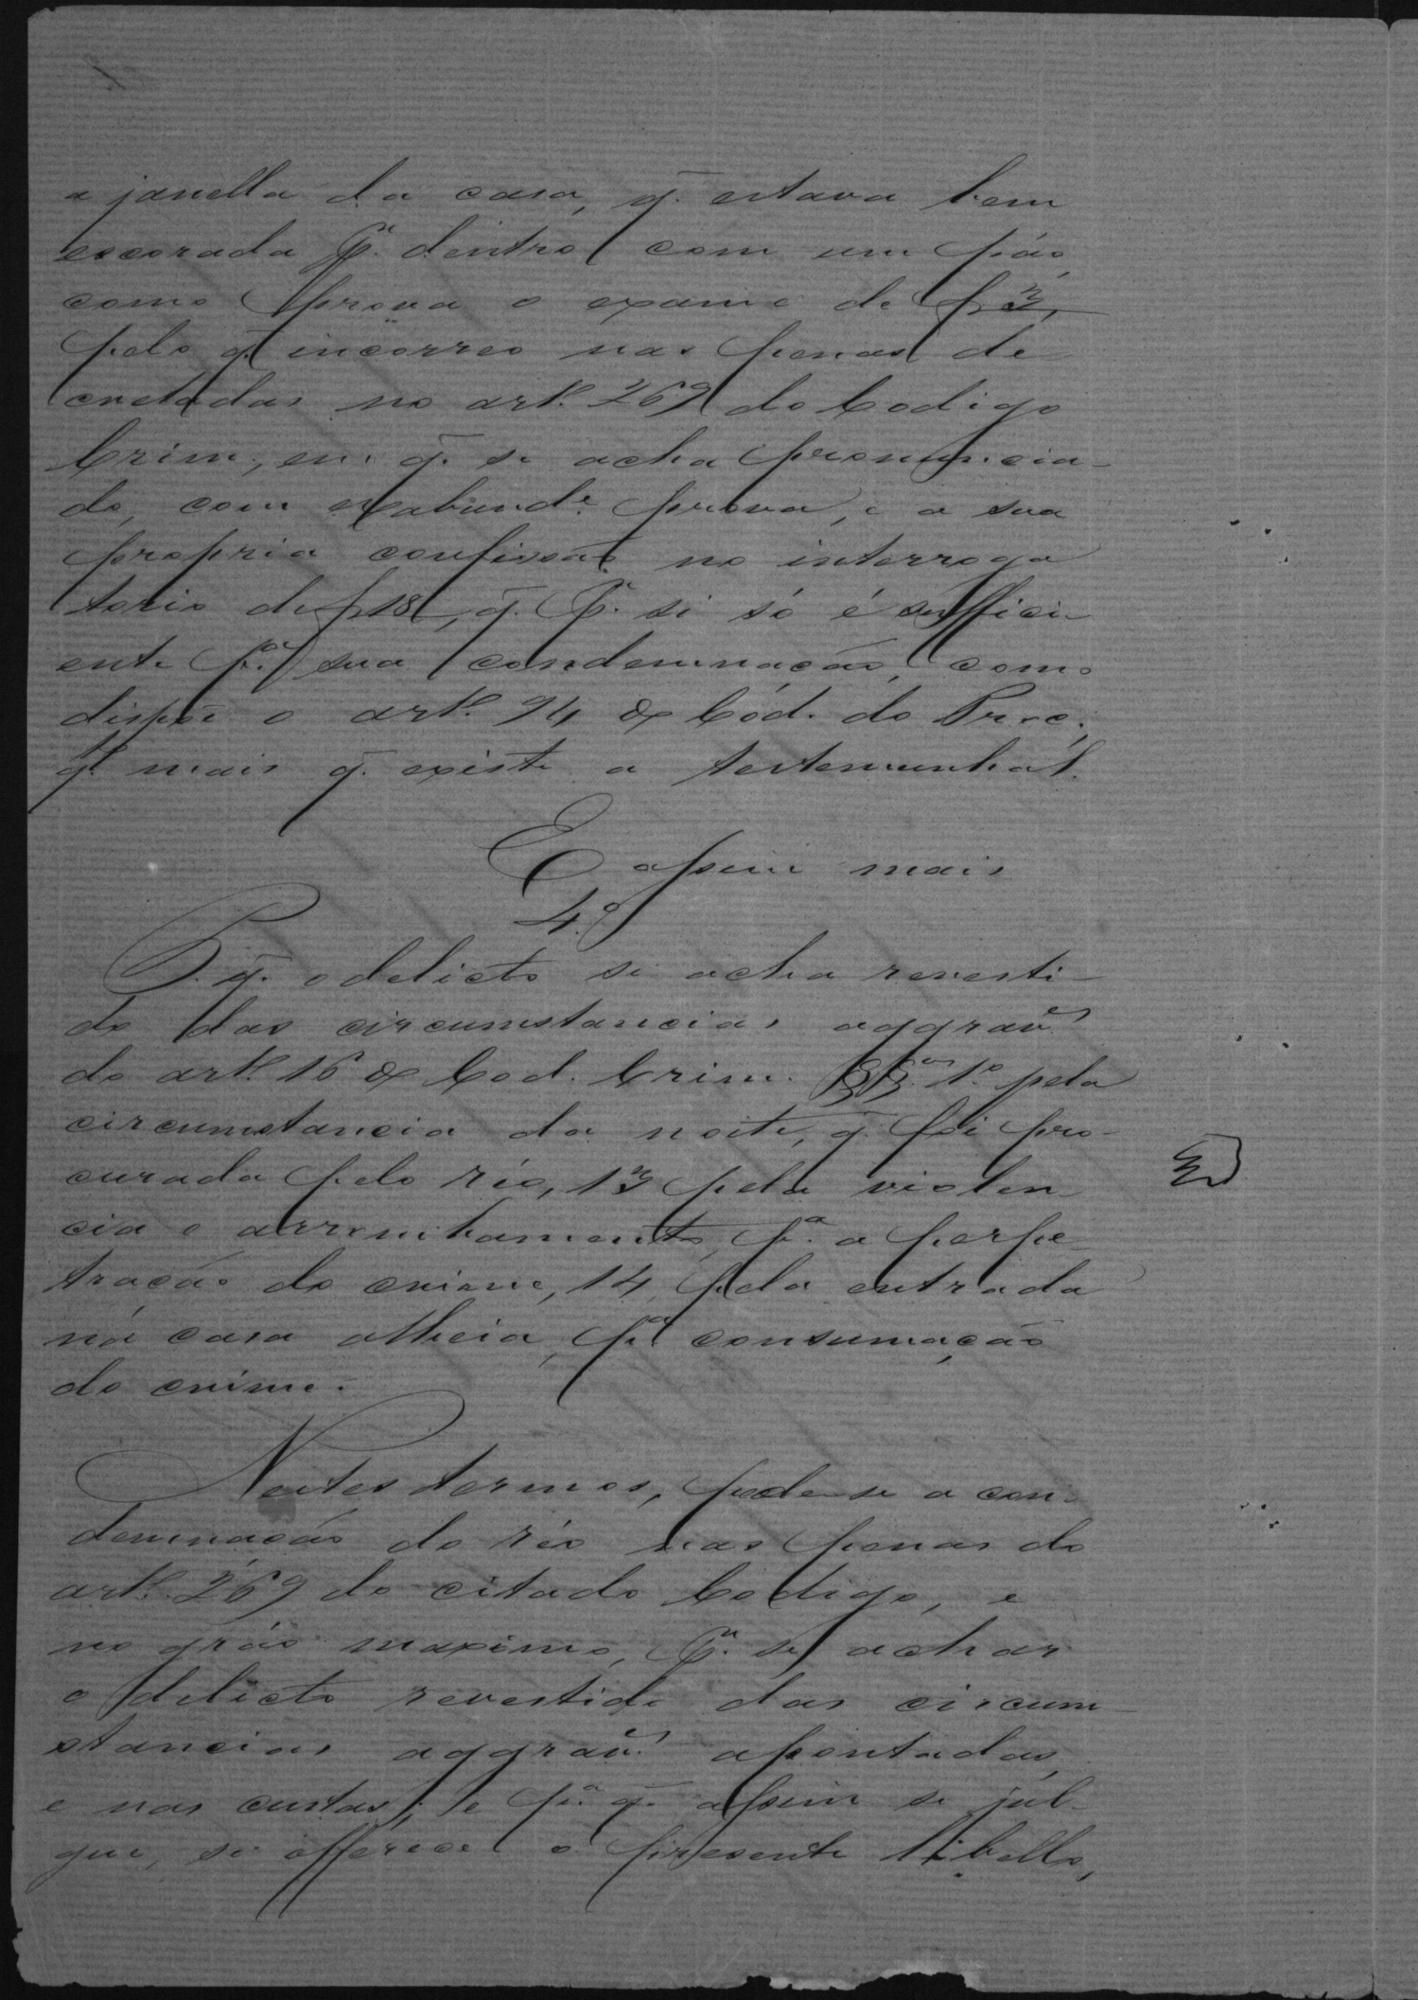 a janella da casa, q̃. estava bem
escorada pr. dentro com um páo,
como prova o exame de f 3,
pelo q̃ incorreo nas penas de
cretadas no artº. 269 do Codigo
Crim., em q̃. se acha pronuncia-
do, com exabunde. prova, e a sua
propria confissão no interroga
torio de f 18, q̃. pr. si só é suffici-
ente pª. sua condemnação, como
dispõe o artº. 94 do Cód. do Proc.,
q̃. mais q̃. existe a testemunhal.
E assim mais
4.º
P. q̃. o delicto se acha revesti-
do das circumstancias aggraves.
do artº. 16 do Cod. Crim. §§os. 1.º pela
circumstancia da noite, q̃. foi pro-
curada pelo réo, 13 pela violen
cia e arrombamento, pª. a perpe
tração do crime, 14, pela entrada
na casa alheia, pª. consumação
do crime.
Nestes termos, pede-se a con-
demnação do réo nas penas do
artº. 269 do citado Codigo, e
no gráo maximo, pr. se achar
o delicto revestido das circum-
stancias aggraves. apontadas,
e nas custas; e pª. q̃. assim se jul-
gue, se offerece o presente libello,